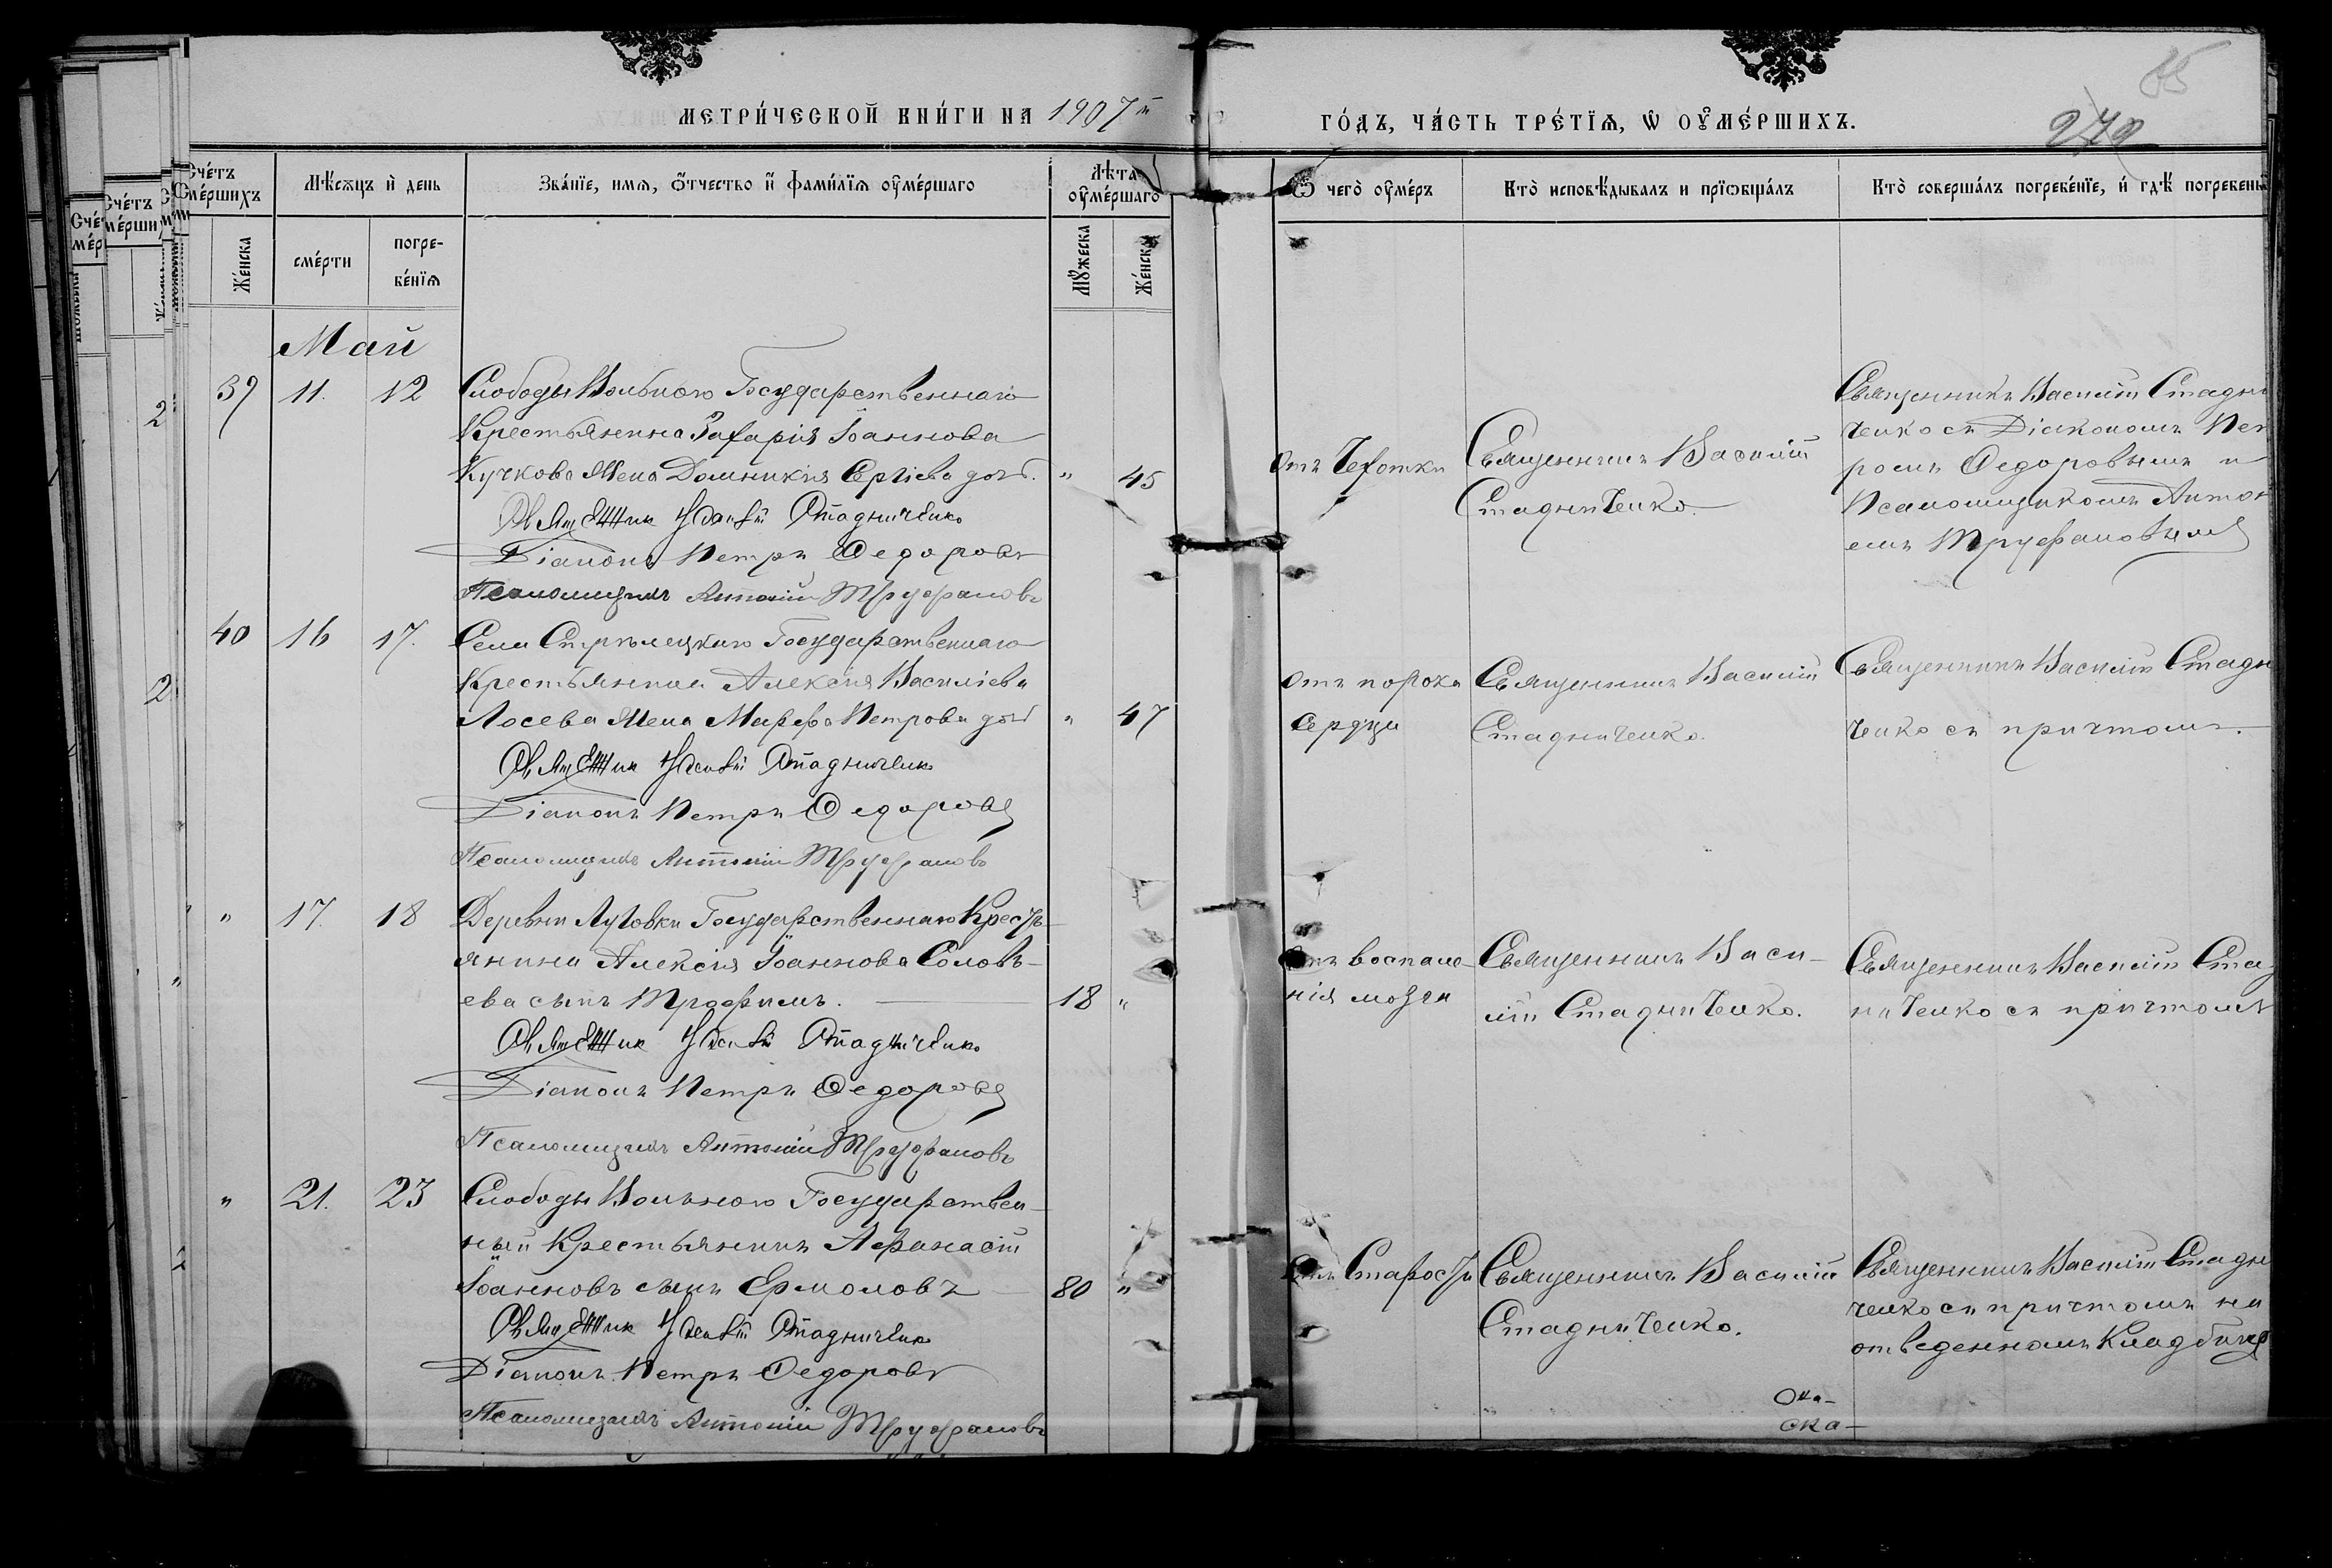 МЕТРИ́ЧЕСКОЙ КНИ́ГИ НА 1907 й
ГО́ДЪ, ЧА́СТЬ ТРЕ́ТЇѦ, Ѿ ОУ҆МЕ́РШИХЪ.
85
272
Счетъ оумершихъ
Женска
Мѣсяцъ и день
смерти
погребенїя
Званїе, имя, отчество и фамилїя оумершаго
Лѣта оумершаго
Мужеска
Женска
Ѿ чего оумеръ
Кто исповѣдывалъ и прїобщалъ
Кто совершалъ погребенїе, и гдѣ погребены
Май
39 11. 12
Слободы Вольного Государственнаго
Крестьянина Захарія Іоаннова
Кучкова жена Домникія Сергіева доч.
" 45
Священник Василій Стадниченко
Діаконъ Петръ Федоровъ
Псаломщикъ Антоній Труфановъ
Отъ Чехотки
Священникъ Василій
Стадниченко.
Священникъ Василій Стадни
ченко съ Діакономъ Пет
ромъ Федоровымъ и
Псаломщикомъ Антон
емъ Труфановымъ
40 16 17.
Села Стрѣлецкаго Государственнаго
Крестьянина Алексія Василіева
Лосева жена Марфа Петрова доч
" 47
Священник Василій Стадниченко
Діаконъ Петръ Федоровъ
Псаломщикъ Антоній Труфановъ
Отъ порока
сердца
Священникъ Василій
Стадниченко.
Священникъ Василій Стадни
ченко съ причтомъ.
" 17. 18
Деревни Луговки Государственнаго Кресть-
янина Алексія Іоаннова Соловь-
ева сынъ Трофимъ.
18 "
Священник Василій Стадниченко
Діаконъ Петръ Федоровъ
Псаломщикъ Антоній Труфановъ
Отъ воспале-
нія мозга
Священникъ Васи-
лій Стадниченко.
Священникъ Василій Стад
ниченко съ причтомъ
" 21. 23
Слободы Вольного Государствен-
ный Крестьянинъ Афанасій
Іоанновъ сынъ Ермоловъ
80 "
Священник Василій Стадниченко
Діаконъ Петръ Федоровъ
Псаломщикъ Антоній Труфановъ
Отъ Старости
Священникъ Василій
Стадниченко.
Священникъ Василій Стадни
ченко съ причтомъ на
отведенномъ Кладбищѣ
ска-